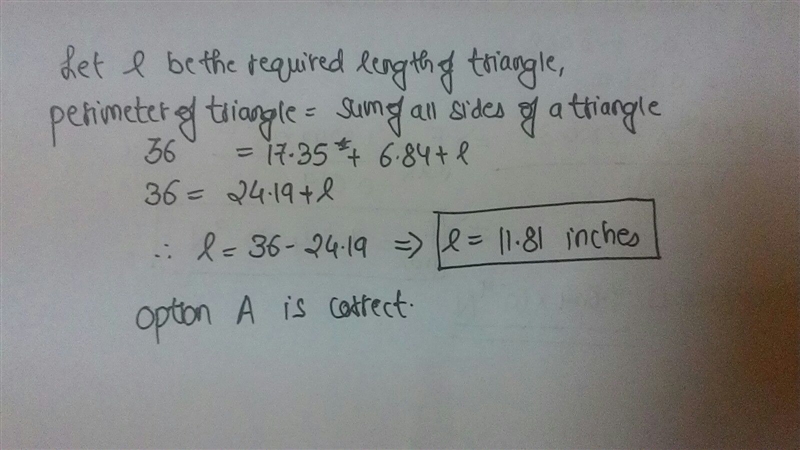 Let l be the required length of triangle,
perimeter of triangle = sum of all sides of a triangle
36 = 17.35 + 6.84 + l
36 = 24.19 + l
∴ l = 36 - 24.19 => l = 11.81 inches
option A is correct.